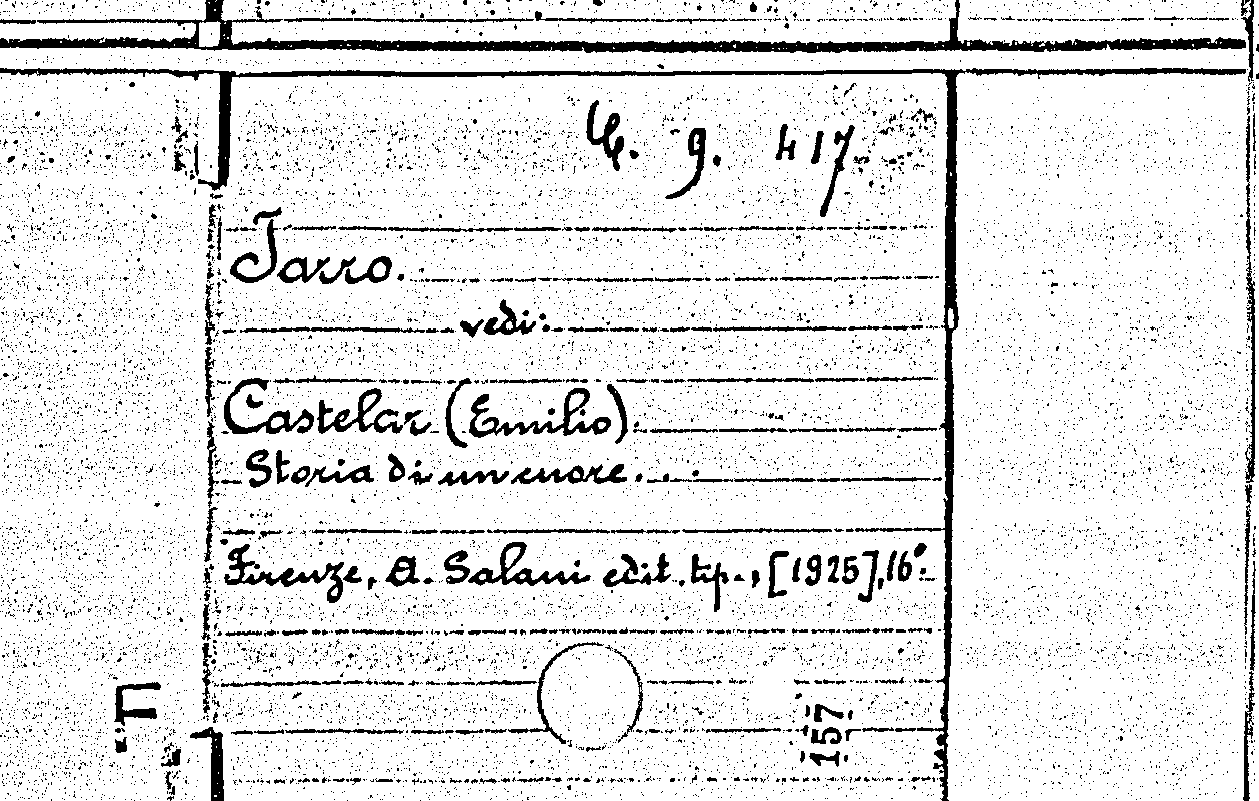 9. 417
Jarro.
vedi:
Castelar (Emilio).
Storia di un cuore...
Firenze, A. Salani edit. tip., [1925], 16°.
157